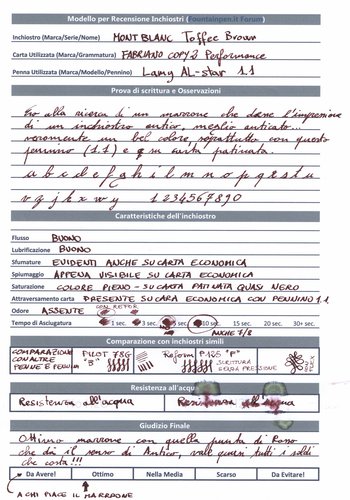 Modello per Recensione Inchiostri (Fountainpen.it Forum)
Inchiostro (Marca/Serie/Nome) MONTBLANC Toffee Brown
Carta Utilizzata (Marca/Grammatura) FABRIANO COPY 2 Performance
Penna Utilizzata (Marca/Modello/Pennino) Lamy AL-star 1.1
Prova di scrittura e Osservazioni
Ero alla ricerca di un marrone che desse l'impressione
di un inchiostro antico, meglio anticato...
veramente un bel colore soprattutto con questo
pennino (1.1) e su carta patinata.
a b c d e f g h i l m n o p q r s t u
v y j k x w y 1 2 3 4 5 6 7 8 9 0
Caratteristiche dell'inchiostro
Flusso BUONO
Lubrificazione BUONO
Sfumature EVIDENTI ANCHE SU CARTA ECONOMICA
Spiumaggio APPENA VISIBILE SU CARTA ECONOMICA
Saturazione COLORE PIENO - SU CARTA PATINATA QUASI NERO
Attraversamento carta PRESENTE SU CARA ECONOMICA CON PENNINO 1.1
Odore ASSENTE CON REFOR
Tempo di Asciugatura 1 sec. 3 sec. 5 sec. 10 sec. 15 sec. 20 sec. 30+ sec.
ANCHE 7/8
Comparazione con inchiostri simili
COMPARAZIONI CON ALTRE PENNE E PENNINI PILOT 78G "B" Reform P.125 "P" SCRITTURA SENZA PRESSIONE CON FLEX
Resistenza all'acqua
Resistenza all'acqua Resistenza all'acqua
Giudizio Finale
Ottimo marrone con quella punta di Rosso
che dai il senso di Antico, vale quasi tutti i soldi
che costa!!!
Da Avere! Ottimo Nella Media Scarso Da Evitare!
A CHI PIACE IL MARRONE